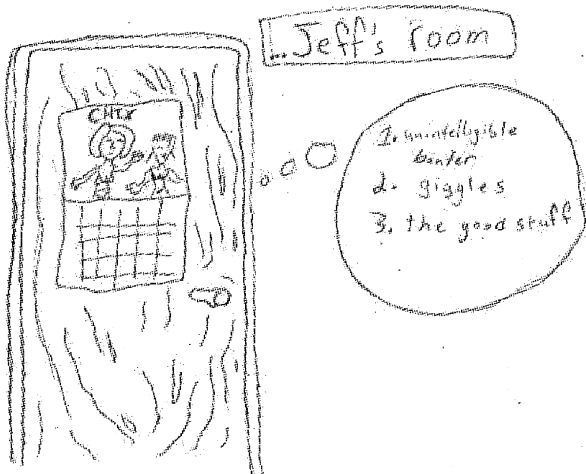 ...Jeff's room
CHIX
1. unintelligible
banter
2. giggles
3. the good stuff